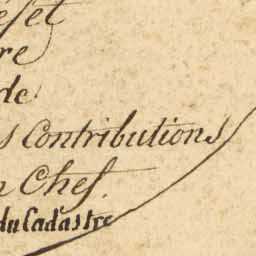 éfet
re
de
s Contributions
n Chef
du Cadastre